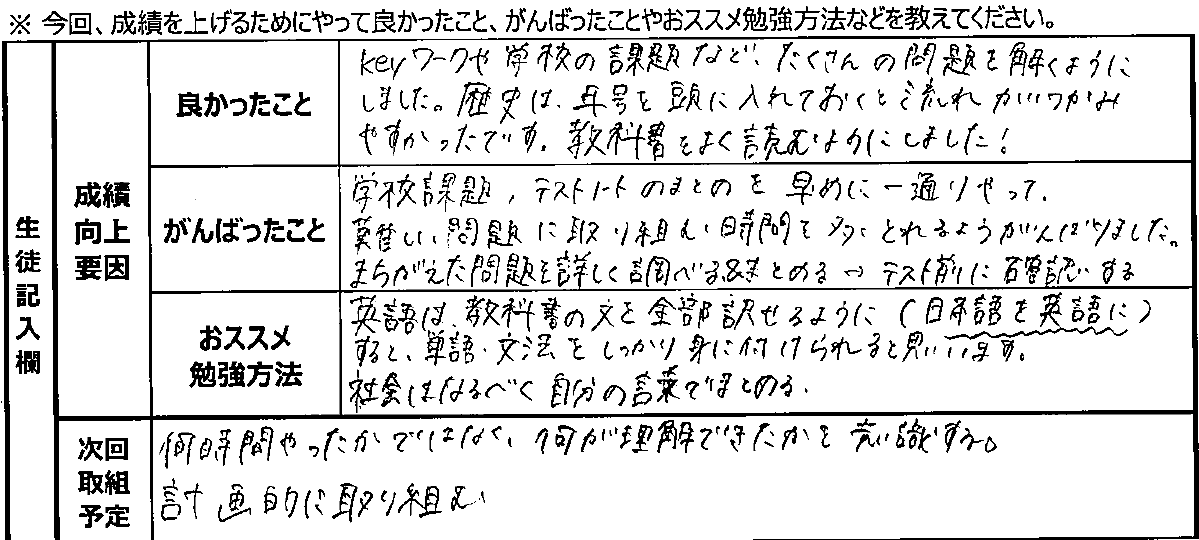 ※ 今回、成績を上げるためにやって良かったこと、がんばったことやおススメ勉強方法などを教えてください。
生徒記入欄
成績向上要因
良かったこと
keyワークや学校の課題など、たくさんの問題を解くように
しました。歴史は、年号を頭に入れておくと流れがつかみ
やすかったです。教科書をよく読むようにしました！
がんばったこと
学校課題，テストノートのまとめを早めに一通りやって、
難しい問題に取り組む時間を多くとれるようがんばりました。
まちがえた問題を詳しく調べる&まとめる→テスト前に確認する
おススメ勉強方法
英語は、教科書の文を全部訳せるように（日本語を英語に）
すると、単語・文法をしっかり身に付けられると思います。
社会はなるべく自分の言葉でまとめる。
次回取組予定
何時間やったかではなく、何が理解できたかを意識する。
計画的に取り組む